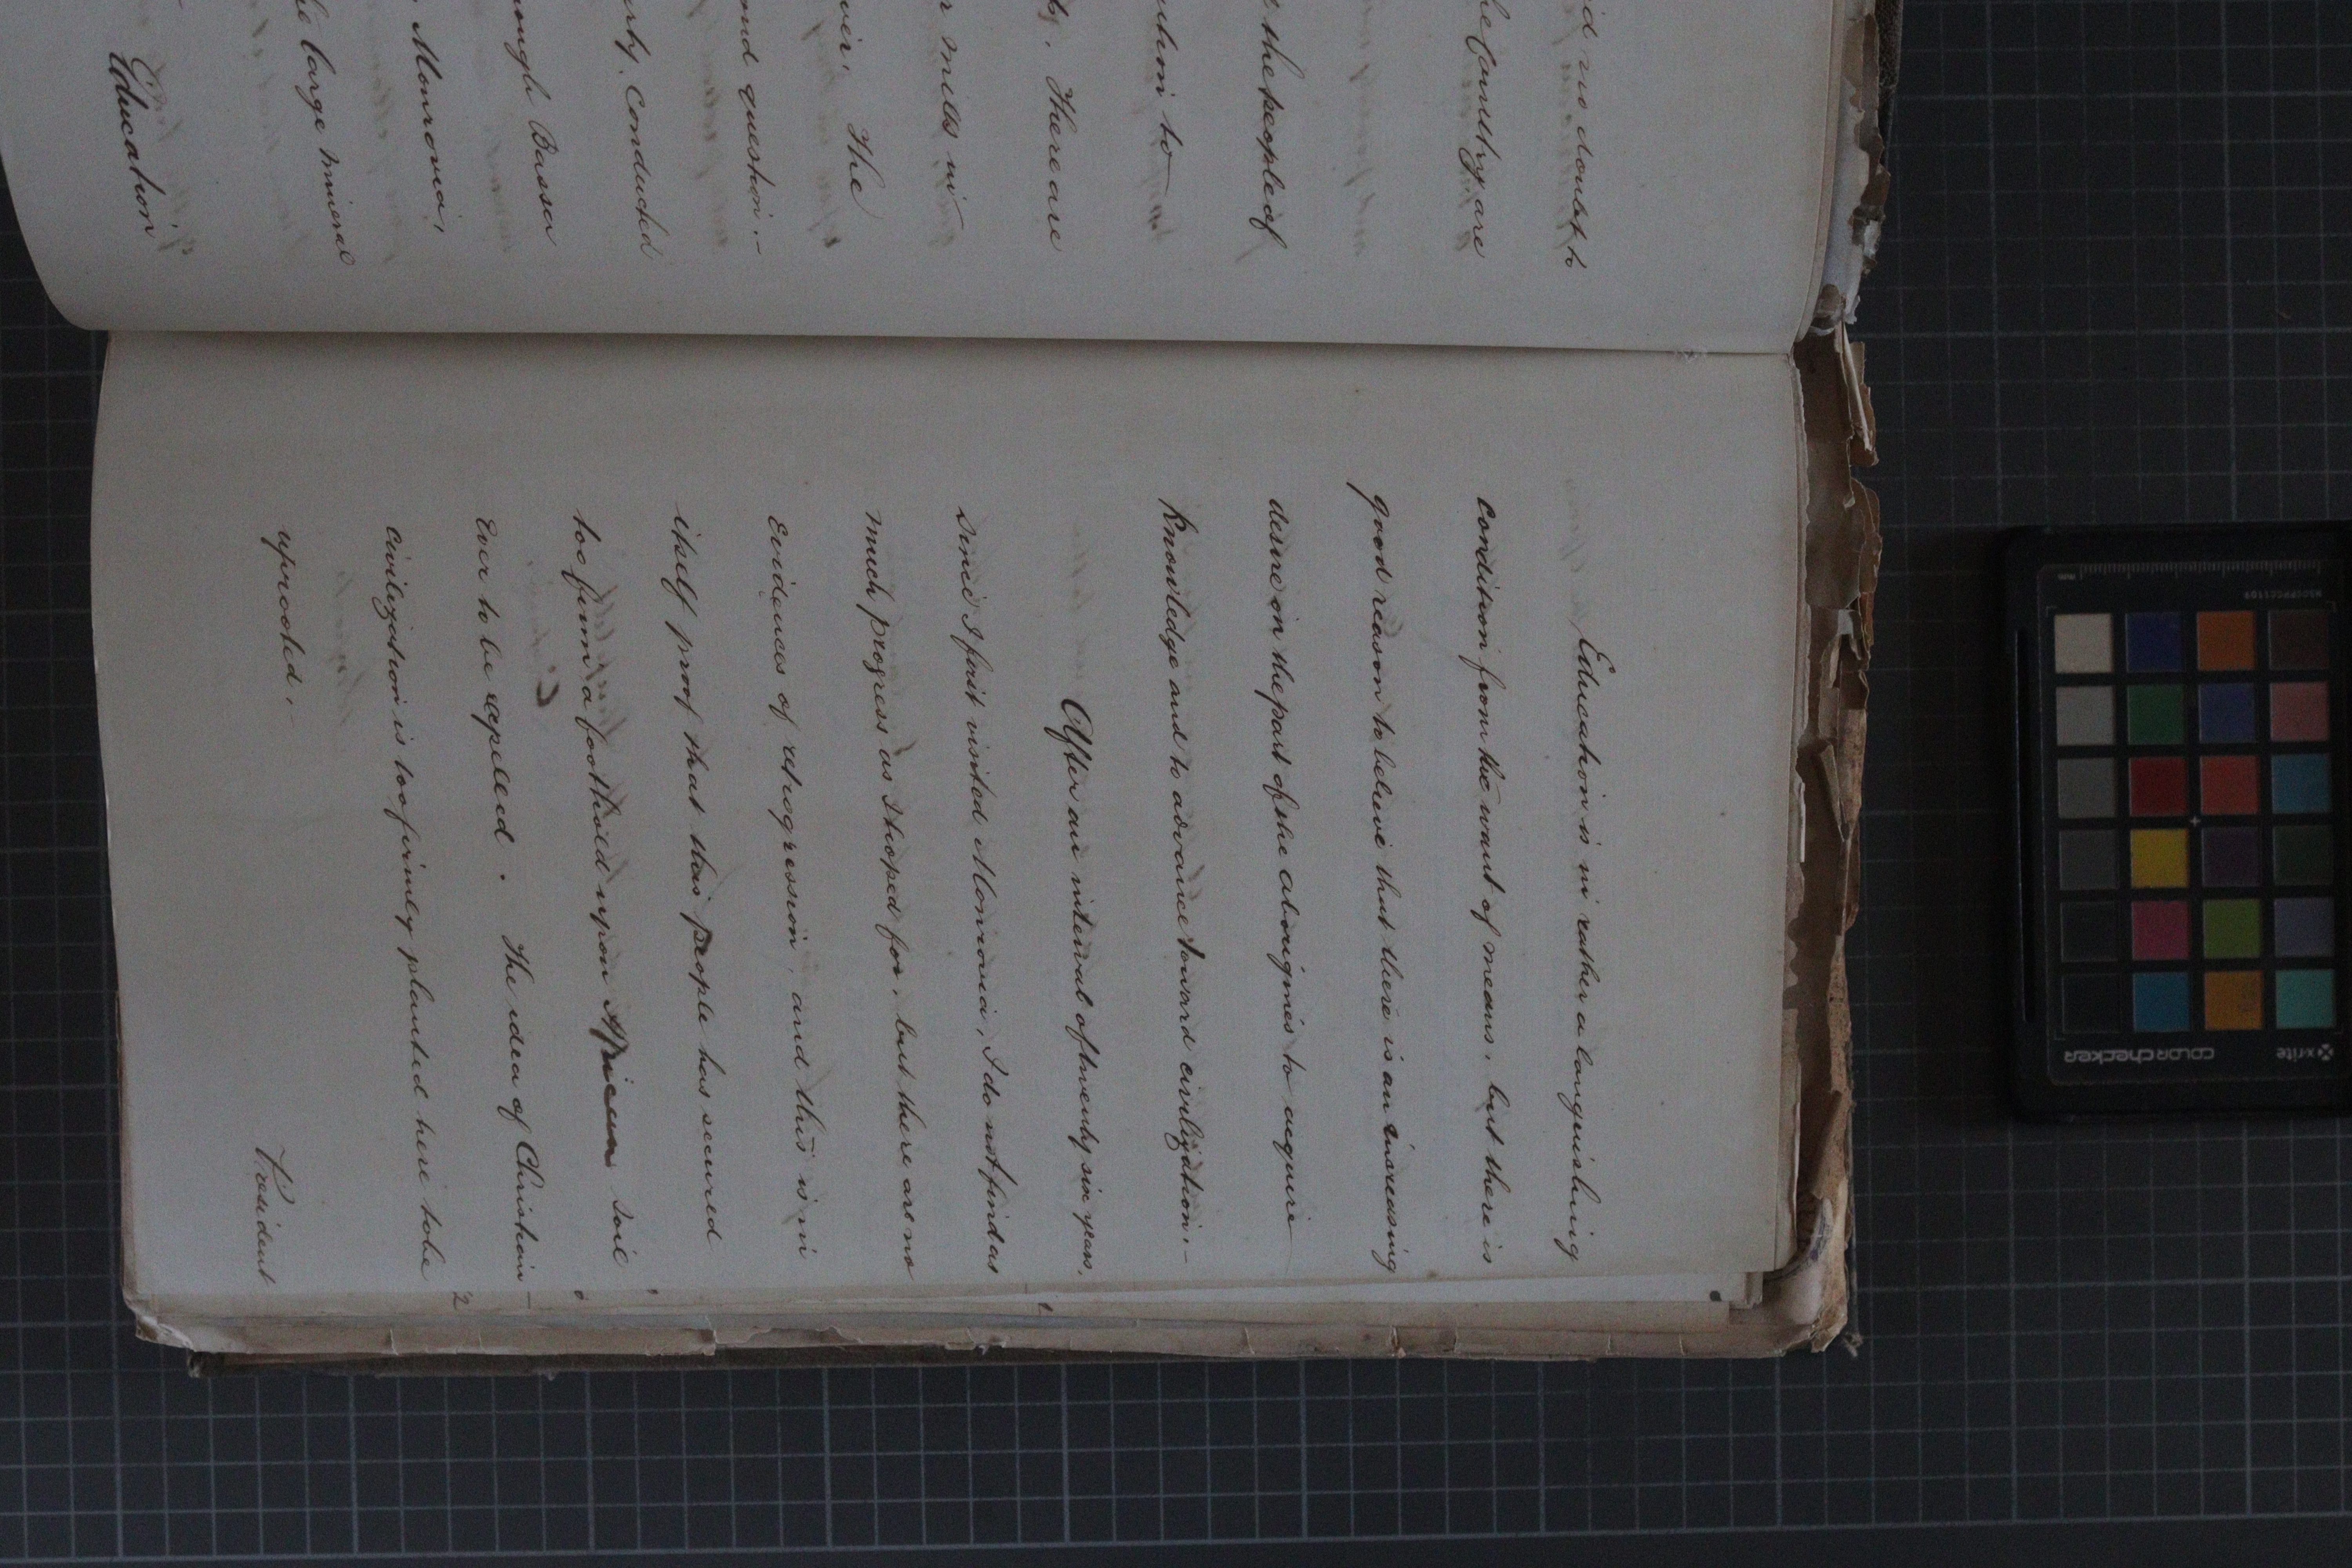 id no doubt to
he Country are
the people of
to
There are
mills in
The
ond question.-
Conducted
rough Bassa
Monrovia,
he large mineral
Education
Education is in rather a languishing
condition from the want of means, but there is
good reason to believe that there is an increasing
desire on the part of the aborigines to acquire
knowledge and to advance toward civilization.-
After an interval of twenty six years,
since I first visited Monrovia, I do not find as
much progress as I hoped for, but there are no
evidences of retrogression, and this is in
itself proof that this people has secured
too firm a foothold upon African soil
ever to be expelled. The idea of Christian-
civilization is too firmly planted here to be
uprooted.-
President
x-rite
colorchecker
mm